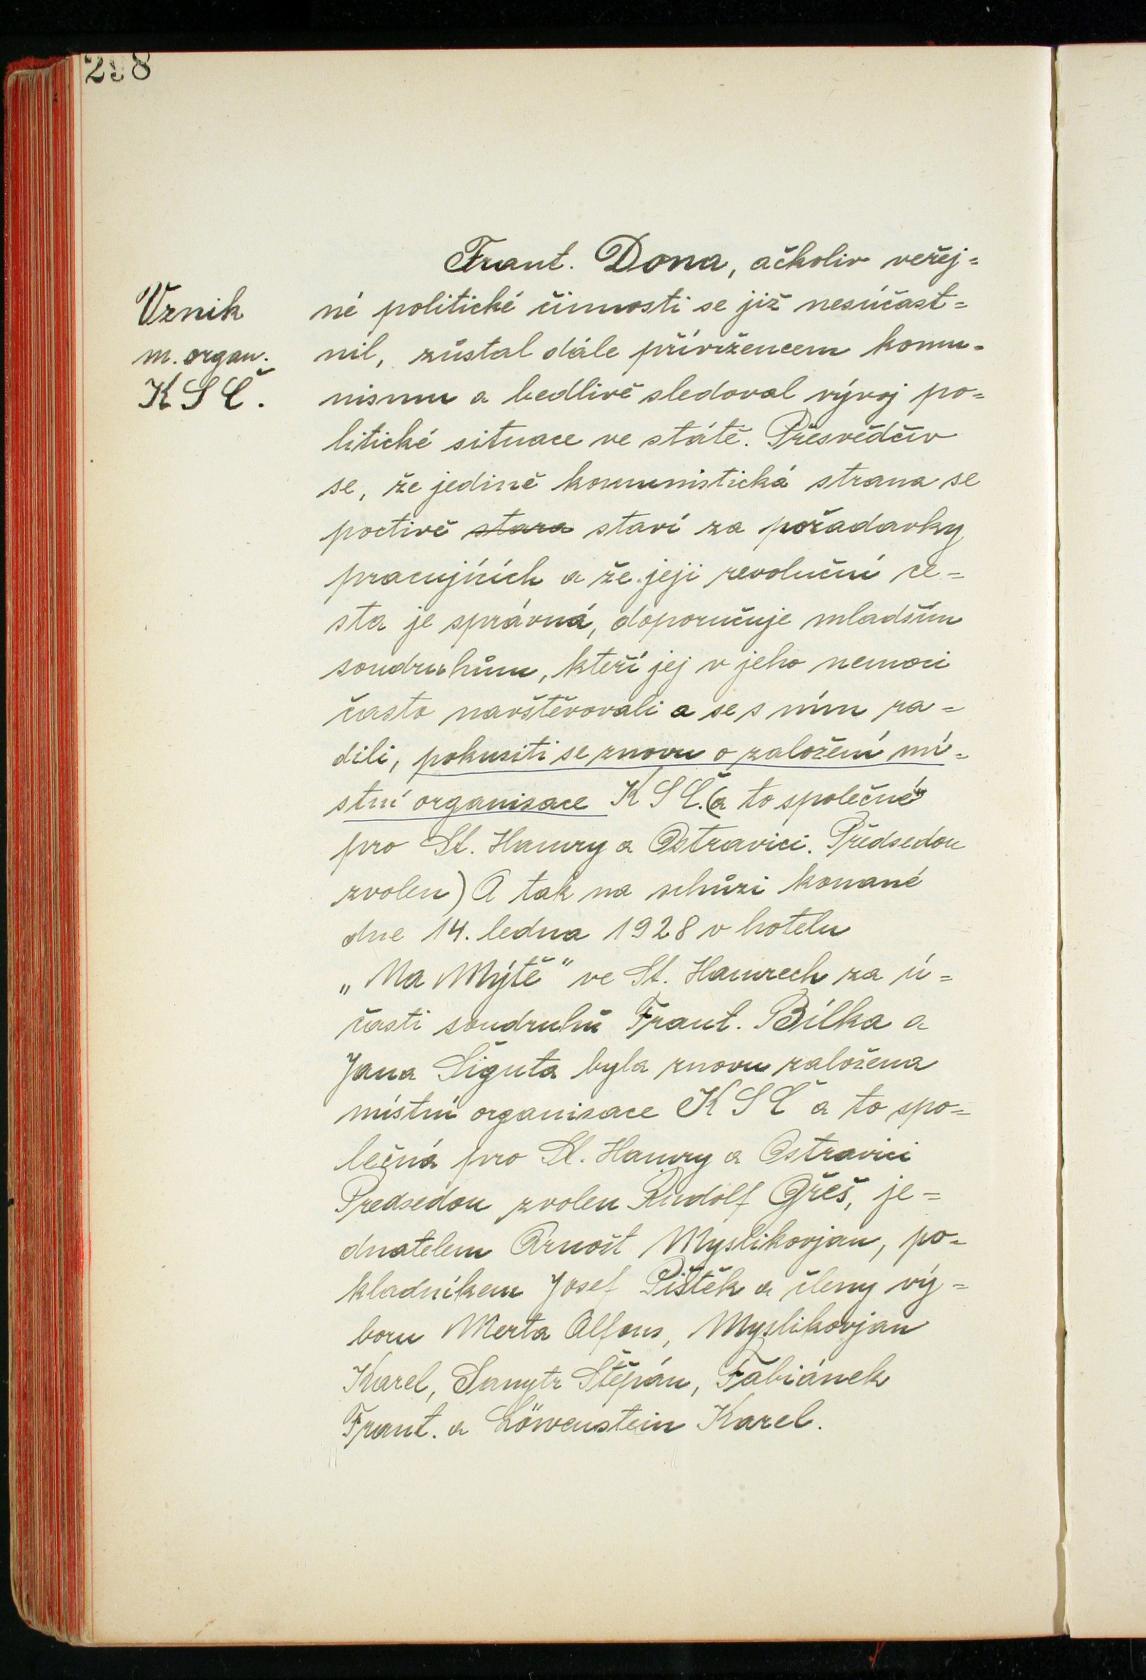 298
Vznik
m. organ.
KSČ.
Frant. Dona, ačkoliv veřej=
né politické činnosti se již nesúčast=
nil, zůstal dále přívržencem komu-
nismu a bedlivě sledoval vývoj po=
litické situace ve státě. Přesvědčiv
se, že jedině komunistická strana se
poctivě stara staví za požadavky
pracujících a že jeji revoluční ce=
sta je správná, doporučuje mladším
soudruhům, kteří jej v jeho nemoci
často navštěvovali a se s ním ra=
dili, pokusiti se znovu o založení mí=
stní organisace KSČ. (a to společné
pro St. Hamry a Ostravici. Předsedou
zvolen) A tak na schůzi konané
dne 14. ledna 1928 v hotelu
„Na Mýtě" ve St. Hamrech za ú=
časti soudruhů Frant. Bílka a
Jana Šiguta byla znovu založena
místní organisace KSČ a to spo=
lečná pro St. Hamry a Ostravici
Předsedou zvolen Rudolf Gřeš, je=
dnatelem Arnošt Myslikovjan, po-
kladníkem Josef Pištěk a členy vý=
boru Merta Alfons, Myslikovjan
Karel, Sanytr Štěpán, Fabiánek
Frant. a Löwenstein Karel.